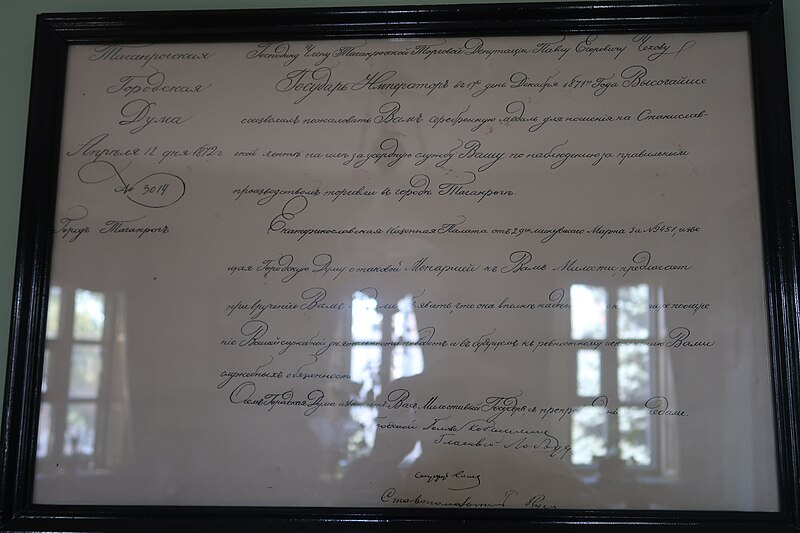 Таганрогская
Городская
Дума
Апрѣля 12 дня 1872 г
№ 3014
Городъ Таганрогъ
Господину Члену Таганрогской Торговой Депутации Павлу Егоровичу Чехову
Государь Императоръ въ 17й день Декабря 1871го Года Высочайше
соизволилъ пожаловать Вамъ серебренную медаль для ношения на Станислав-
ской лентѣ на шеѣ за усердную службу Вашу по наблюдению за правильнымъ
производствомъ торговли въ городѣ Таганрогѣ.
Екатеринославская Казенная Палата отъ 29го минувшаго Марта за № 3451, извѣ
щая Городскую Думу о таковой Монаршей къ Вамъ Милости, предлагаетъ
при вручении Вамъ что она вполнѣ
ние Вашей служебной дѣятельности и въ будущемъ къ ревностному исполнению Вами
служебныхъ обязанностей
О семъ Городская Дума Васъ, Милостивый Государь съ медали.
Городской Голова
Гласный